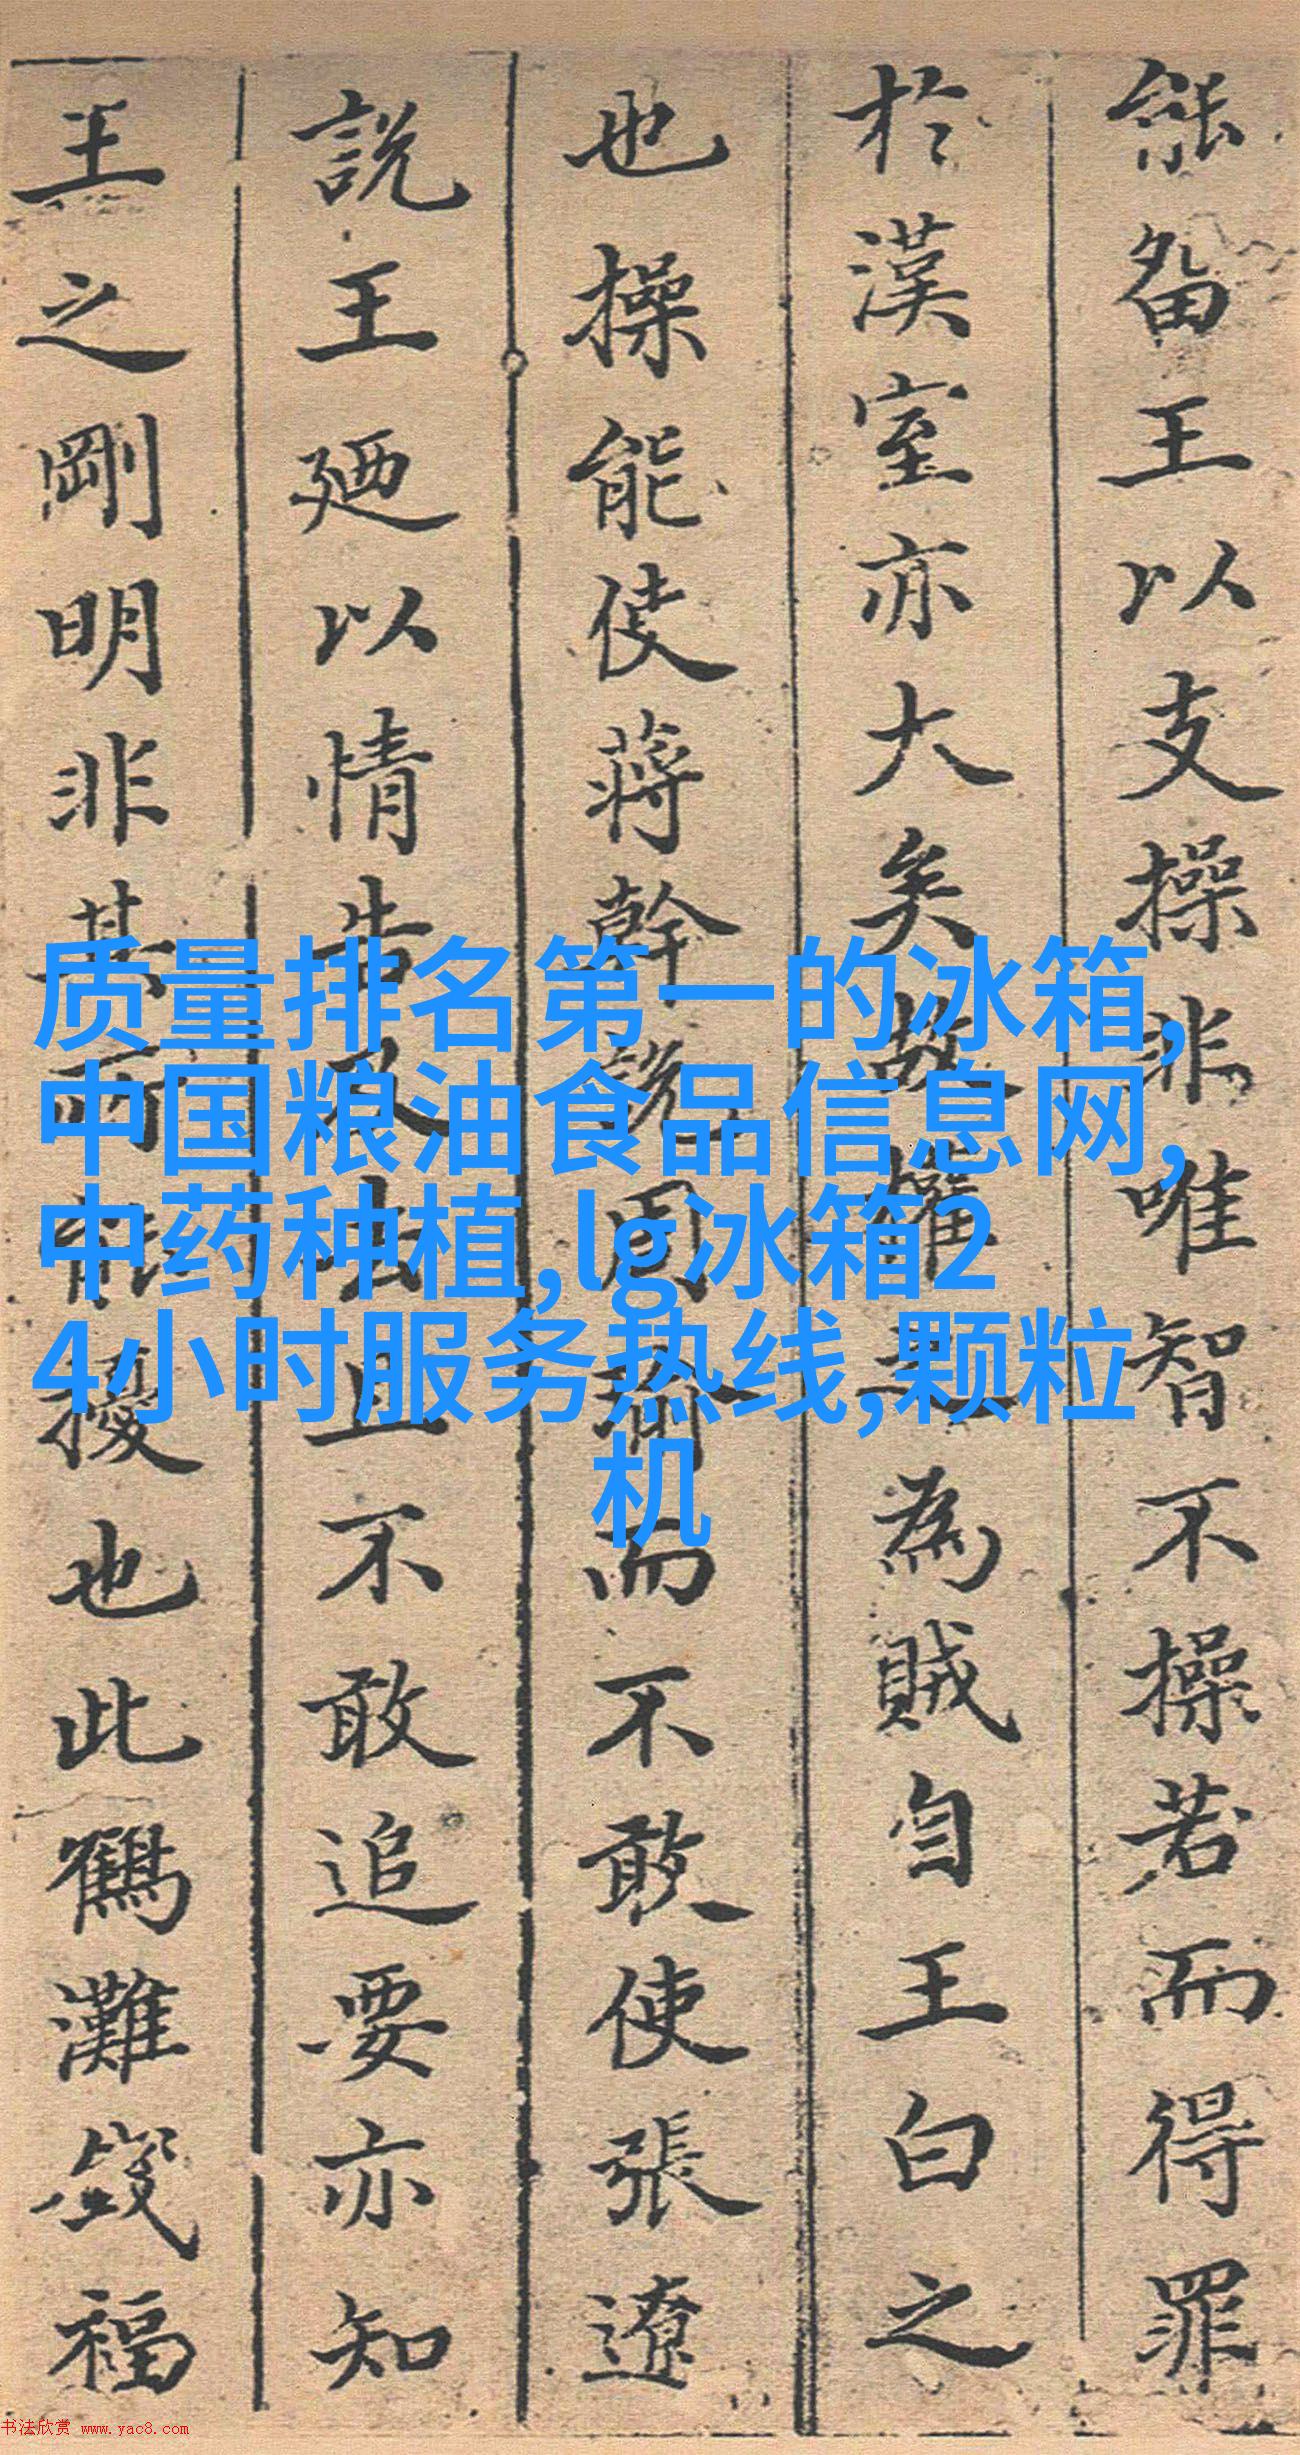 能留王以支操非唯智不操若而得罪
於漢室亦大矣故權之為賊自王白之
也操能使蔣幹說周瑜而不敢使張遼
說王廼以情告又去且不敢追要亦知
王之剛明非其所能擾也此鶴灘錢福
质量排名第一的冰箱,
中国粮油食品信息网,
中药种植,lg冰箱2
4小时服务热线,颗粒
机
书法欣赏 www.yac8.com